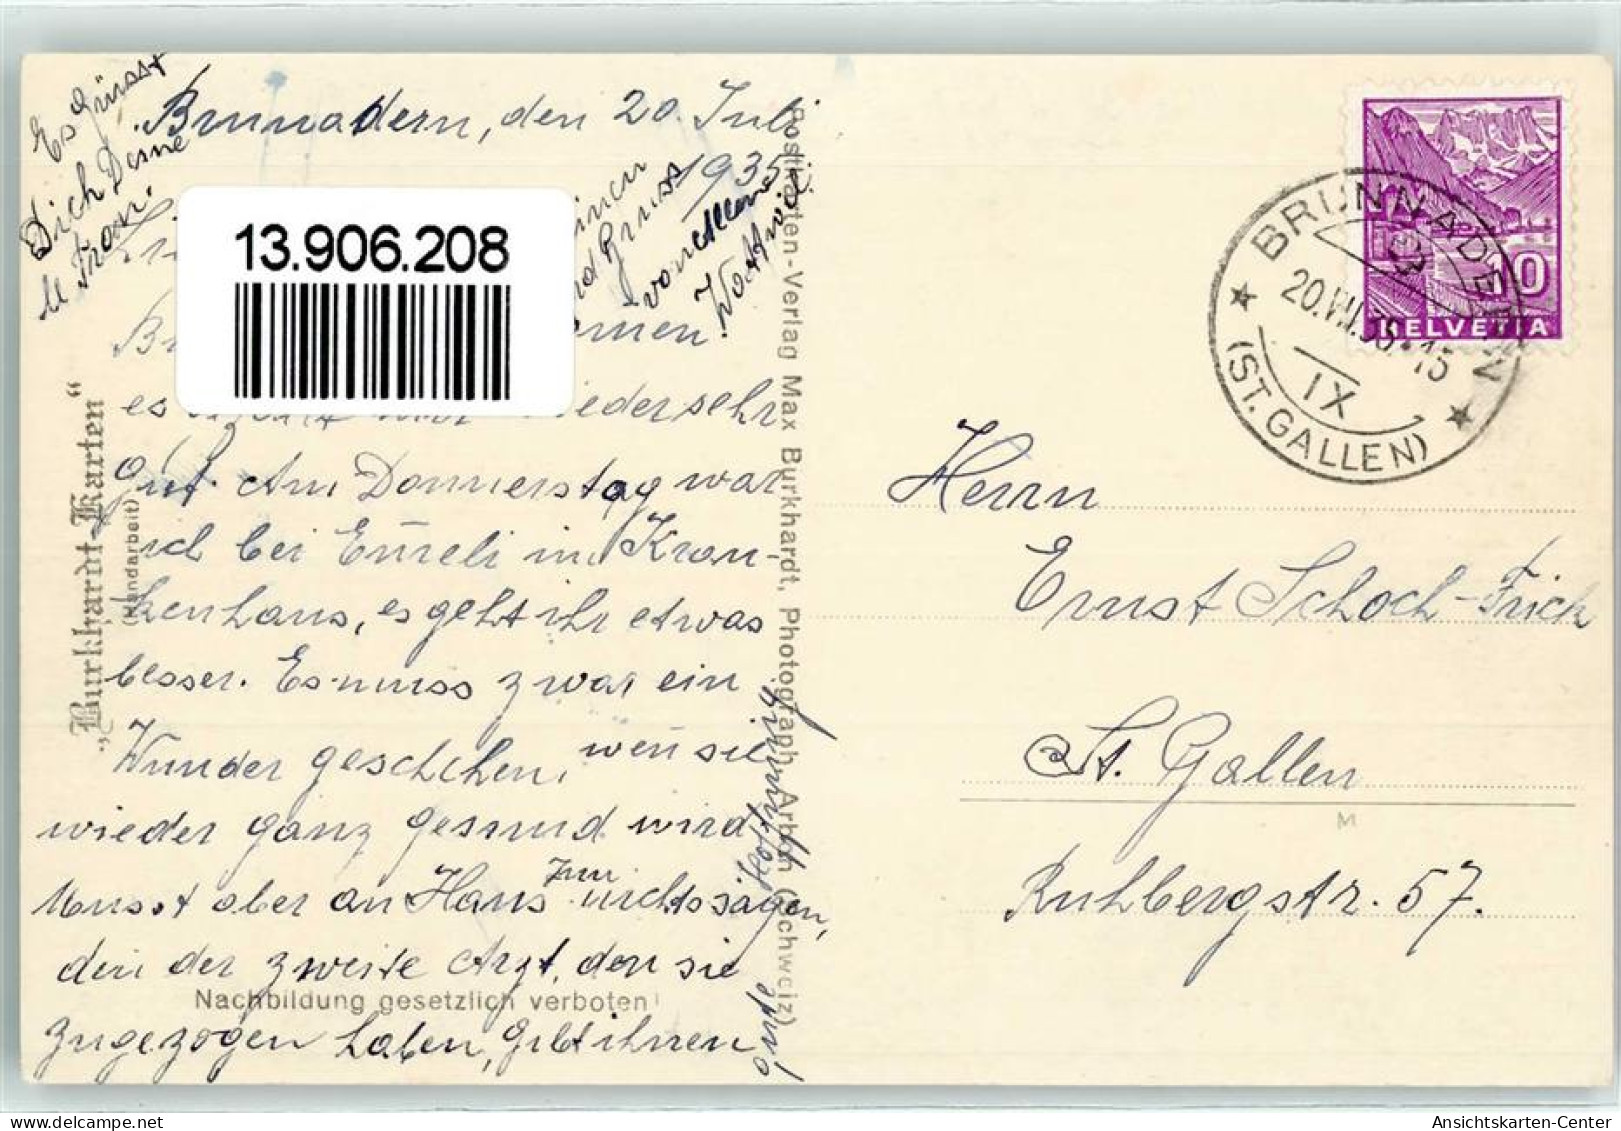 Es Grüsst
Dich Deine
Brunnadern, den 20. Juli
1935.
von Allen
13.906.208
es
wiedersehr
gut. Am Donnerstag war
ich bei Emeli im Kran-
kenhaus, es geht ihr etwas
besser. Es muss zwar ein
Wunder geschehen, wen sie
wieder ganz gesund wird
Musst aber an Hans nichts sagen,
den der zweite Arzt, den sie
zugezogen haben, gibt ihnen
Hoffnung
"Burkhardt-Karten"
(Handarbeit)
Nachbildung gesetzlich verboten!
Postkarten-Verlag Max Burkhardt, Photograph, Arbon (Schweiz)
BRUNNADERN
20.VII.35.15
IX
(ST. GALLEN)
10
HELVETIA
Herrn
Ernst Schoch-Frick
St. Gallen
M
Ruhbergstr. 57.
Ansichtskarten-Center